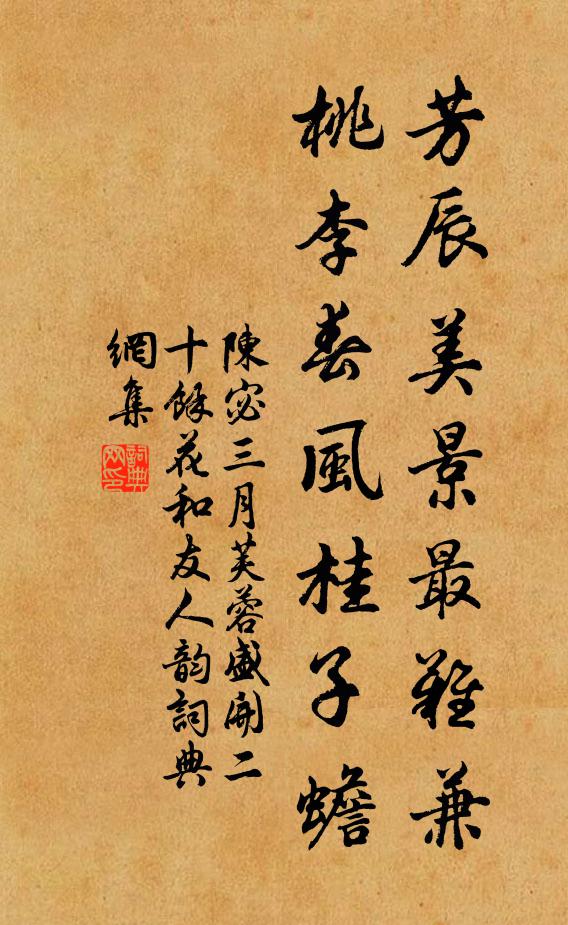 芳辰美景最難兼
桃李春風桂子蟾
陳宓三月芙蓉盛開二
十餘花和友人韵詞典
網集
詞典網印